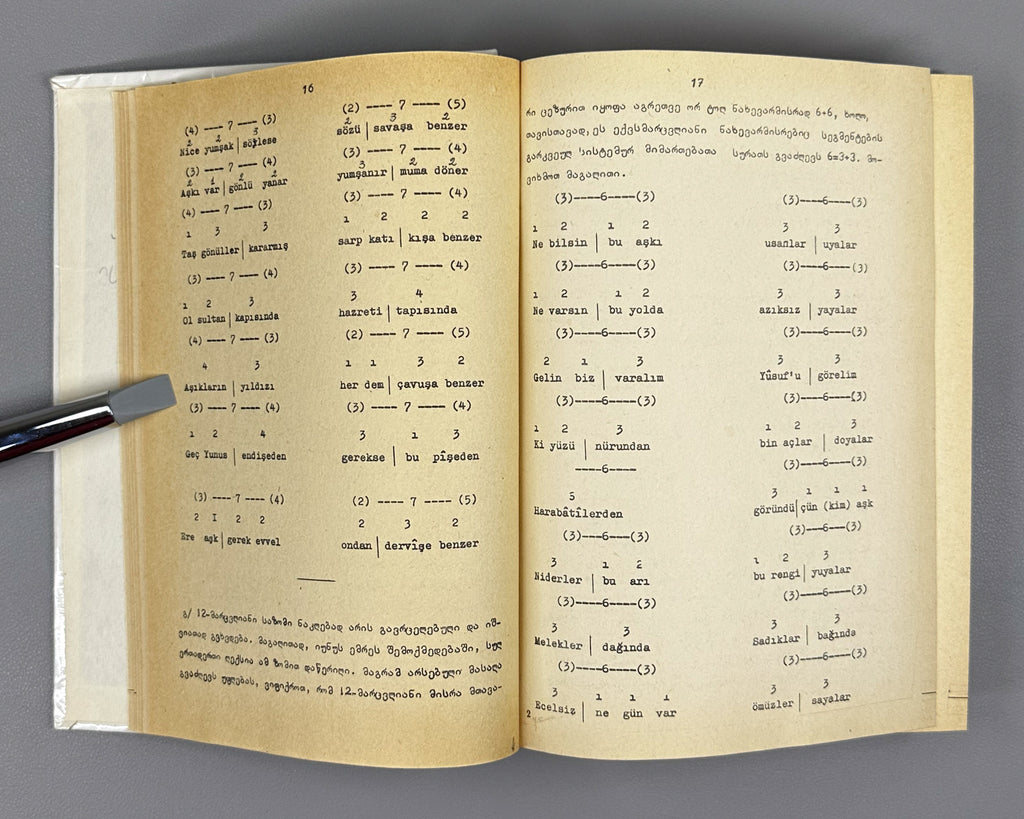 16
(4) ---- 7 ---- (3)
2 2 3
Nice yumşak | söylese
(3) ---- 7 ---- (4)
2 1 2 2
Aşkı var | gönlü yanar
(4) ---- 7 ---- (3)
1 3 3
Taş gönüller | kararmış
(3) ---- 7 ---- (4)
1 2 3
Ol sultan | kapısında
(4) ---- 7 ---- (3)
4 3
Aşıkların | yıldızı
(3) ---- 7 ---- (4)
1 2 4
Geç Yunus | endişeden
(3) ---- 7 ---- (4)
2 I 2 2
Ere aşk | gerek evvel
(2) ---- 7 ---- (5)
2 3 2
sözü | savaşa benzer
(3) ---- 7 ---- (4)
3 2 2
yumşanır | muma döner
(3) ---- 7 ---- (4)
1 2 2 2
sarp katı | kışa benzer
(3) ---- 7 ---- (4)
3 4
hazreti | tapısında
(2) ---- 7 ---- (5)
1 1 3 2
her dem | çavuşa benzer
(3) ---- 7 ---- (4)
3 1 3
gerekse | bu pîşeden
(2) ---- 7 ---- (5)
2 3 2
ondan | dervîşe benzer
გ/ 12-მარცვლიანი საზომი ნაკლებად არის გავრცელებული და იშ-
ვიათად გვხვდება. მაგალითად, იუნუს ემრეს შემოქმედებაში, სულ
ერთადერთი ლექსია ამ ზომით დაწერილი. მაგრამ არსებული მასალა
გვაძლევს უფლებას, ვიფიქროთ, რომ 12-მარცვლიანი მისრა მთავა-
17
რი ცეზურით იყოფა აგრეთვე ორ ტოლ ნახევარმისრად 6+6, ხოლო,
თავისთავად, ეს ექვსმარცვლიანი ნახევარმისრებიც სეგმენტების
გარკვეულ სისტემურ მიმართებათა სურათს გვაძლევს 6=3+3. მო-
ვიხმოთ მაგალითი.
(3)----6----(3)
1 2 1 2
Ne bilsin | bu aşkı
(3)----6----(3)
1 2 1 2
Ne varsın | bu yolda
(3)----6----(3)
2 1 3
Gelin biz | varalım
(3)----6----(3)
1 2 3
Ki yüzü | nûrundan
----6----
5
Harabâtîlerden
(3)----6----(3)
3 1 2
Niderler | bu arı
(3)----6----(3)
3 3
Melekler | dağında
(3)----6----(3)
3 1 1 1
Ecelsiz | ne gün var
2
(3)----6----(3)
3 3
usanlar | uyalar
(3)----6----(3)
3 3
azıksız | yayalar
(3)----6----(3)
3 3
Yûsuf'u | görelim
(3)----6----(3)
1 2 3
bin açlar | doyalar
(3)----6----(3)
3 1 1 1
göründü | çün (kim) aşk
(3)----6----(3)
1 2 3
bu rengi | yuyalar
(3)----6----(3)
3 3
Sadıklar | bağında
(3)----6----(3)
3 3
ömüzler | sayalar